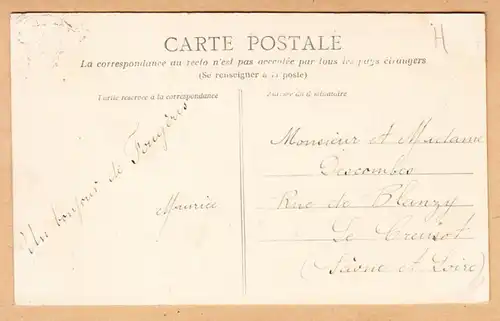 CARTE POSTALE
La correspondance au recto n'est pas acceptée par tous les pays étrangers
(Se renseigner à la poste)
Partie réservée à la correspondance
Adresse du destinataire
H
Un bonjour de Fougères
Maurice
Monsieur et Madame
Descombes
Rue de Blanzy
Le Creusot
(Saône et Loire)